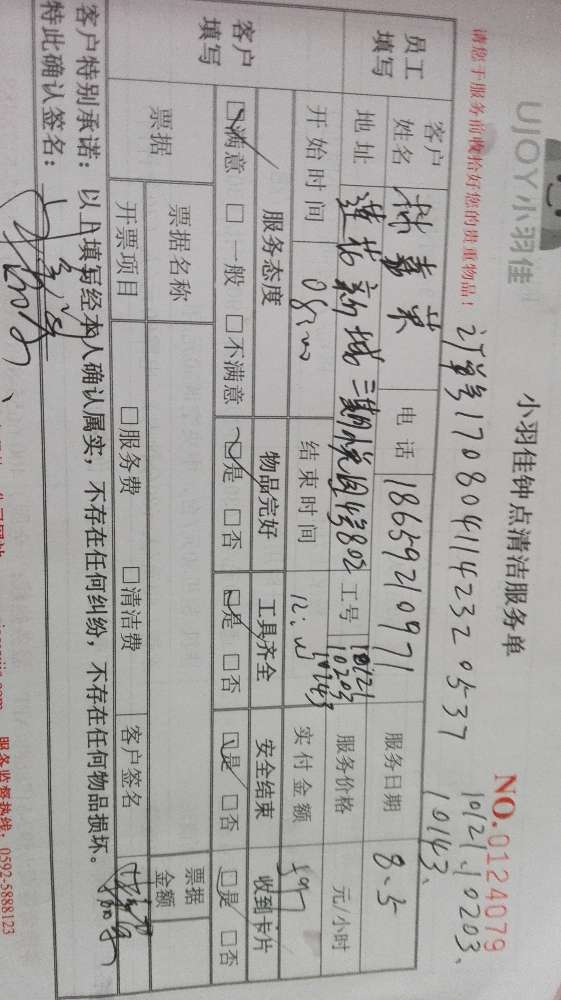 UJOY小羽佳
小羽佳钟点清洁服务单
NO.0124079
10121.10203、
10143、
请您于服务前收拾好您的贵重物品！
订单号1708041142320537
员工填写
客户姓名 林嘉英 电话 18659210971 服务日期 8.5
地址 莲花新城三期 802 工号 10121 10203 10143 服务价格 元/小时
开始时间 08:00 结束时间 12:00 实付金额
客户填写
服务态度 物品完好 工具齐全 安全结束 收到卡片
☑满意 □一般 □不满意 ☑是 □否 ☑是 □否 ☑是 □否 ☑是 □否
票据 票据名称 票据金额
开票项目 □服务费 □清洁费 客户签名
客户特别承诺：以上填写经本人确认属实，不存在任何纠纷，不存在任何物品损坏。
特此确认签名：
服务监督热线：0592-5888123